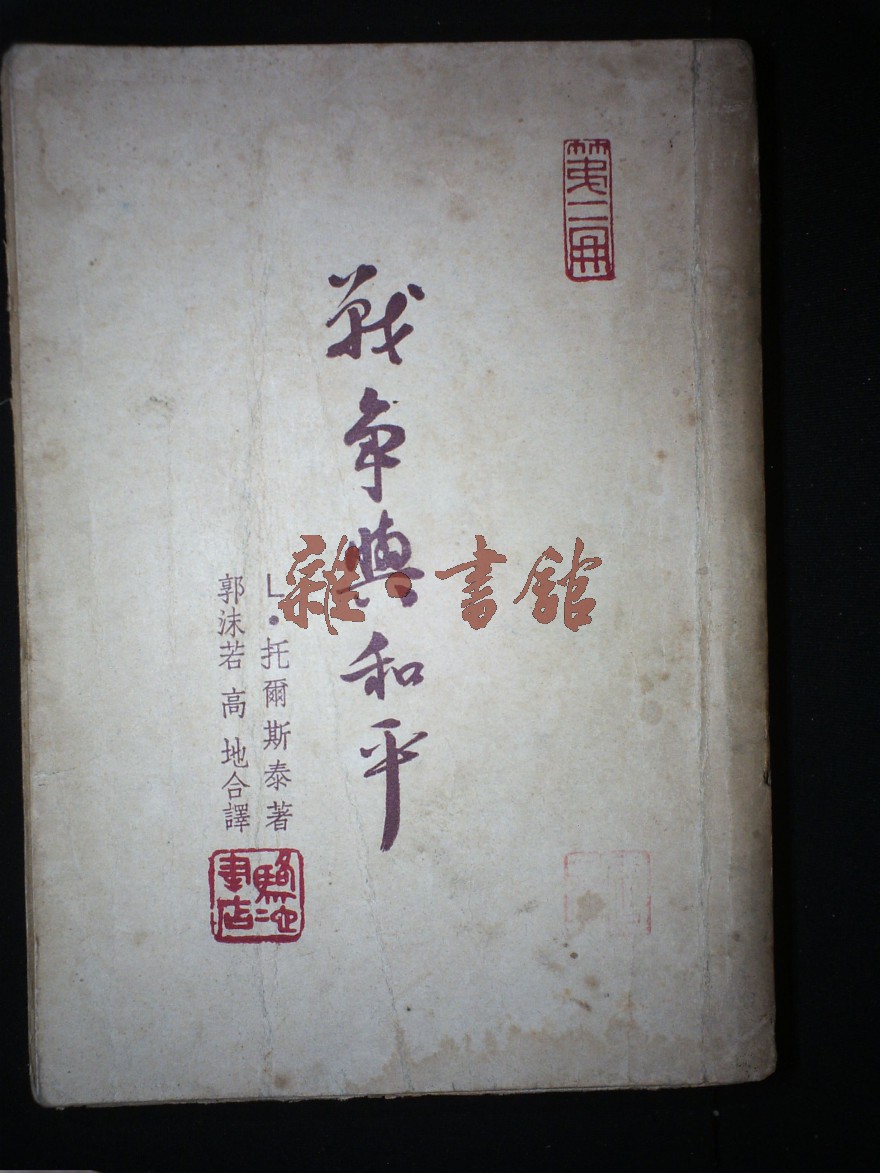 第二冊
戰爭與和平
L·托爾斯泰著
郭沫若 高 地合譯
駱駝書店
雜·書館